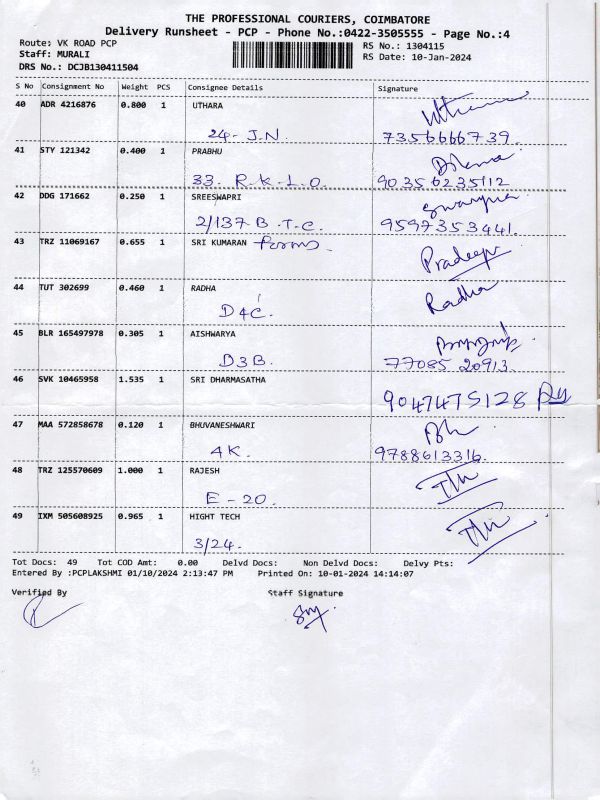 THE PROFESSIONAL COURIERS, COIMBATORE
Delivery Runsheet - PCP - Phone No.:0422-3505555 - Page No.:4
Route: VK ROAD PCP
RS No.: 1304115
Staff: MURALI
RS Date: 10-Jan-2024
DRS No.: DCJB130411504
S No Consignment No Weight PCS Consignee Details Signature
40 ADR 4216876 0.800 1 UTHARA
24- J.N. 7356666739.
41 STY 121342 0.400 1 PRABHU
33. R.K-L.O. 90356235112
42 DDG 171662 0.250 1 SREESWAPRI
2/137 B.T.C. 9597353441.
43 TRZ 11069167 0.655 1 SRI KUMARAN Farms. Pradeep
44 TUT 302699 0.460 1 RADHA Radha
D4C.
45 BLR 165497978 0.305 1 AISHWARYA
D3B. 77085 20913.
46 SVK 10465958 1.535 1 SRI DHARMASATHA
9047475128
47 MAA 572858678 0.120 1 BHUVANESHWARI
4K. 9788613316.
48 TRZ 125570609 1.000 1 RAJESH
E-20.
49 IXM 505608925 0.965 1 HIGHT TECH
3/24.
Tot Docs: 49 Tot COD Amt: 0.00 Delvd Docs: Non Delvd Docs: Delvy Pts:
Entered By :PCPLAKSHMI 01/10/2024 2:13:47 PM Printed On: 10-01-2024 14:14:07
Verified By Staff Signature